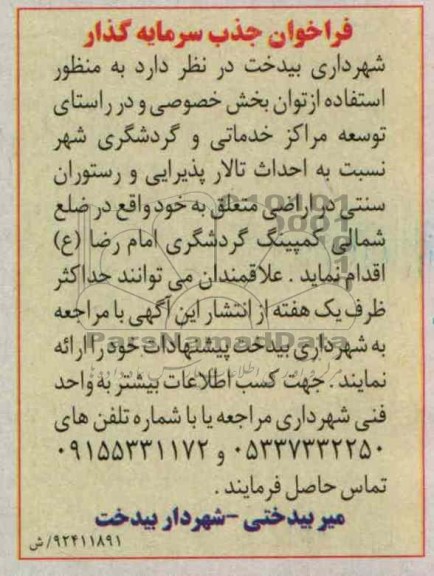 فراخوان جذب سرمایه گذار
شهرداری بیدخت در نظر دارد به منظور
استفاده ازتوان بخش خصوصی و در راستای
توسعه مراکز خدماتی و گردشگری شهر
نسبت به احداث تالار پذیرایی و رستوران
سنتی در اراضی متعلق به خود واقع در ضلع
شمالی کمپینگ گردشگری امام رضا (ع)
اقدام نماید . علاقمندان می توانند حداکثر
ظرف یک هفته از انتشار این آگهی با مراجعه
به شهرداری بیدخت پیشنهادات خود را ارائه
ParsNamadData
نمایند . جهت کسب اطلاعات بیشتر به واحد
فنی شهرداری مراجعه یا با شماره تلفن های
۰۵۳۳۷۷۳۲۲۵۰ و ۰۹۱۵۵۳۳۱۱۷۲
تماس حاصل فرمایند .
میر بیدختی -شهردار بیدخت
۹۲۴۱۱۸۹۱/ش